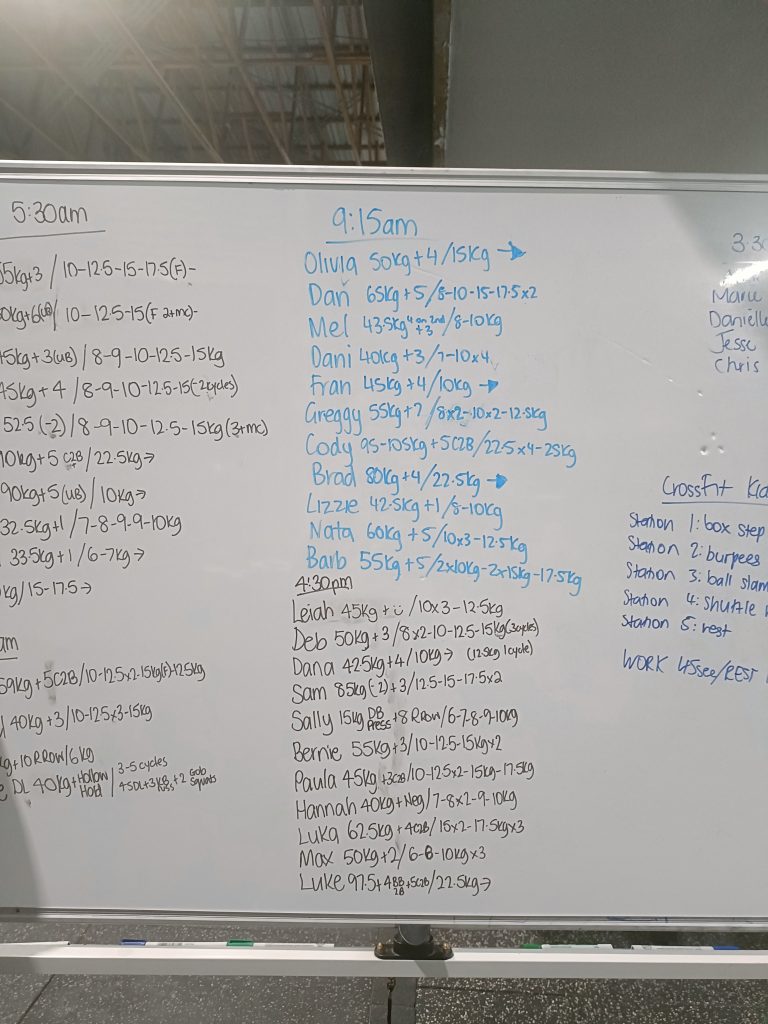 5:30am
55kg+3 / 10-12.5-15-17.5(F)-
0kg+6(UB)/ 10-12.5-15(F 2+mc)-
45kg+3(UB) / 8-9-10-12.5-15kg
45kg+4 / 8-9-10-12.5-15(-2cycles)
52.5(-2) / 8-9-10-12.5-15kg(3+mc)
10kg+5 C2B / 22.5kg→
90kg+5(UB) / 10kg→
32.5kg+1 / 7-8-9-9-10kg
33.5kg+1 / 6-7kg→
kg/15-17.5→
am
59kg+5C2B/10-12.5x2-15kg(F)-12.5kg
40kg+3/10-12.5x3-15kg
kg+10 RROW/6kg
DL 40kg+Hollow Hold / 3-5 cycles
9:15am
Olivia 50kg+4/15kg →
Dan 65kg+5/8-10-15-17.5x2
Mel 43.5kg 4 on 2nd +3 /8-10kg
Dani 40kg+3/7-10x4
Fran 45kg+4/10kg →
Greggy 55kg+7/8x2-10x2-12.5kg
Cody 95-105kg+5C2B/22.5x4-25kg
Brad 80kg+4/22.5kg →
Lizzie 42.5kg+1/8-10kg
Nata 60kg+5/10x3-12.5kg
Barb 55kg+5/2x10kg-2x15kg-17.5kg
4:30pm
Leiah 45kg+☺/10x3-12.5kg
Deb 50kg+3/8x2-10-12.5-15kg(3cycles)
Dana 42.5kg+4/10kg→ (12.5kg 1cycle)
Sam 85kg(-2)+3/12.5-15-17.5x2
Sally 15kg DB Press+8 RRow/6-7-8-9-10kg
Bernie 55kg+3/10-12.5-15kgx2
Paula 45kg+3C2B/10-12.5x2-15kg-17.5kg
Hannah 40kg+Neg/7-8x2-9-10kg
Luka 62.5kg+4C2B/15x2-17.5kgx3
Max 50kg+2/6-8-10kgx3
Luke 97.5+4 BB 2B+5C2B/22.5kg→
3:30
Danielle
Jesse
Chris
CrossFit
Station 1: box step
Station 2: burpees
Station 3: ball slam
Station 4: shuttle
Station 5: rest
WORK 45sec/REST